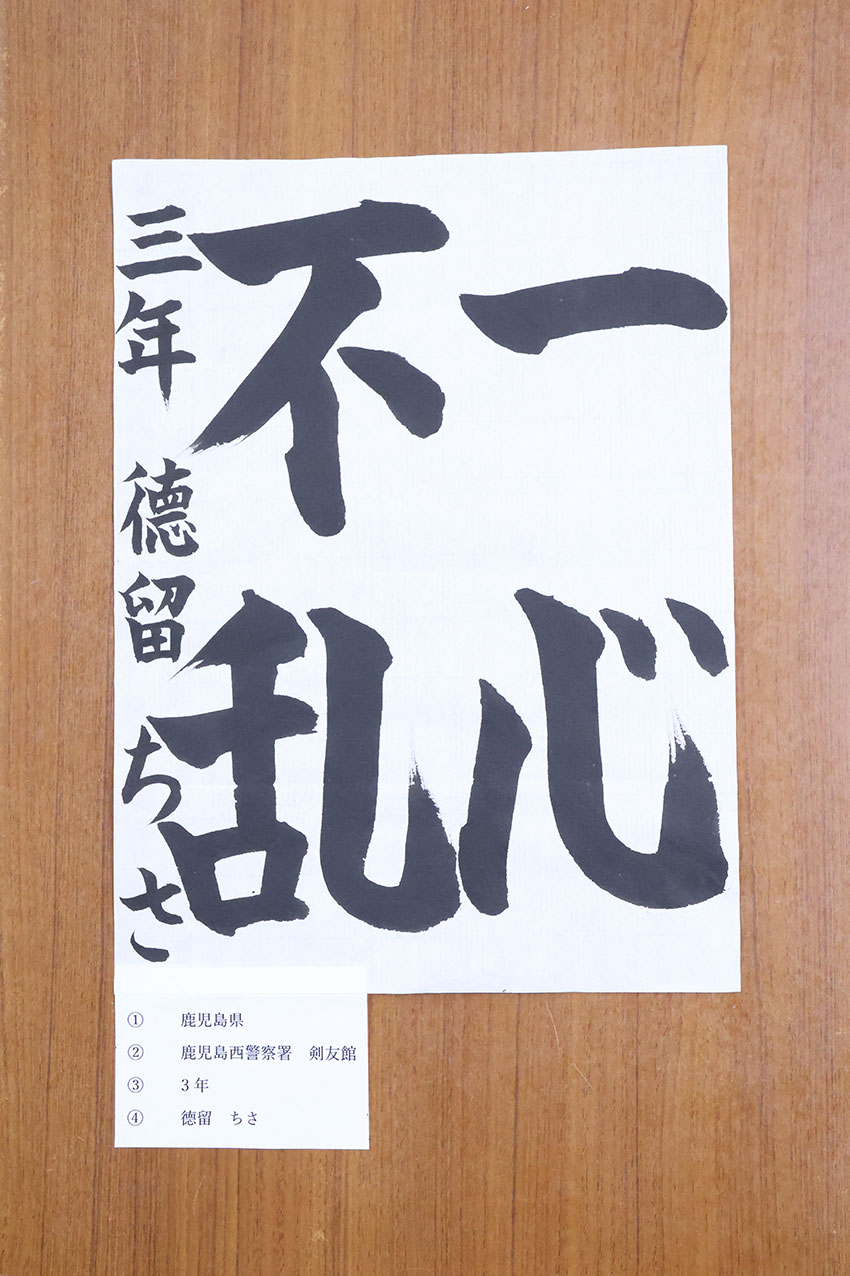 一心
不乱
三年 徳留 ちさ
① 鹿児島県
② 鹿児島西警察署 剣友館
③ 3年
④ 徳留 ちさ